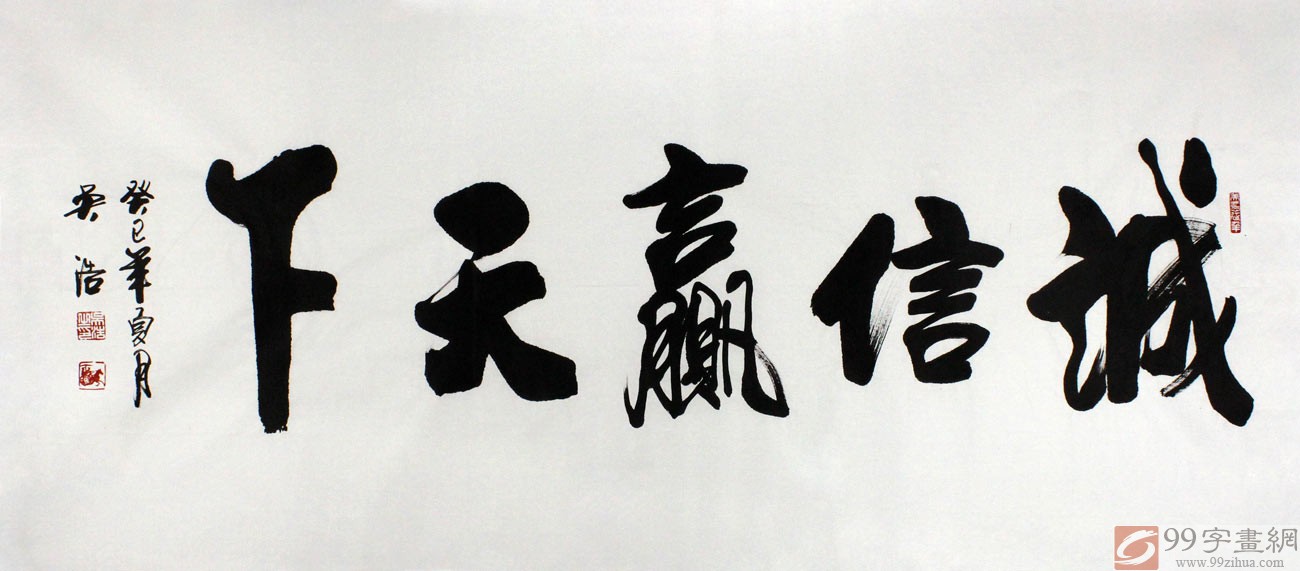 誠信赢天下
癸巳年夏月
吴浩
99字畫網
www.99zihua.com